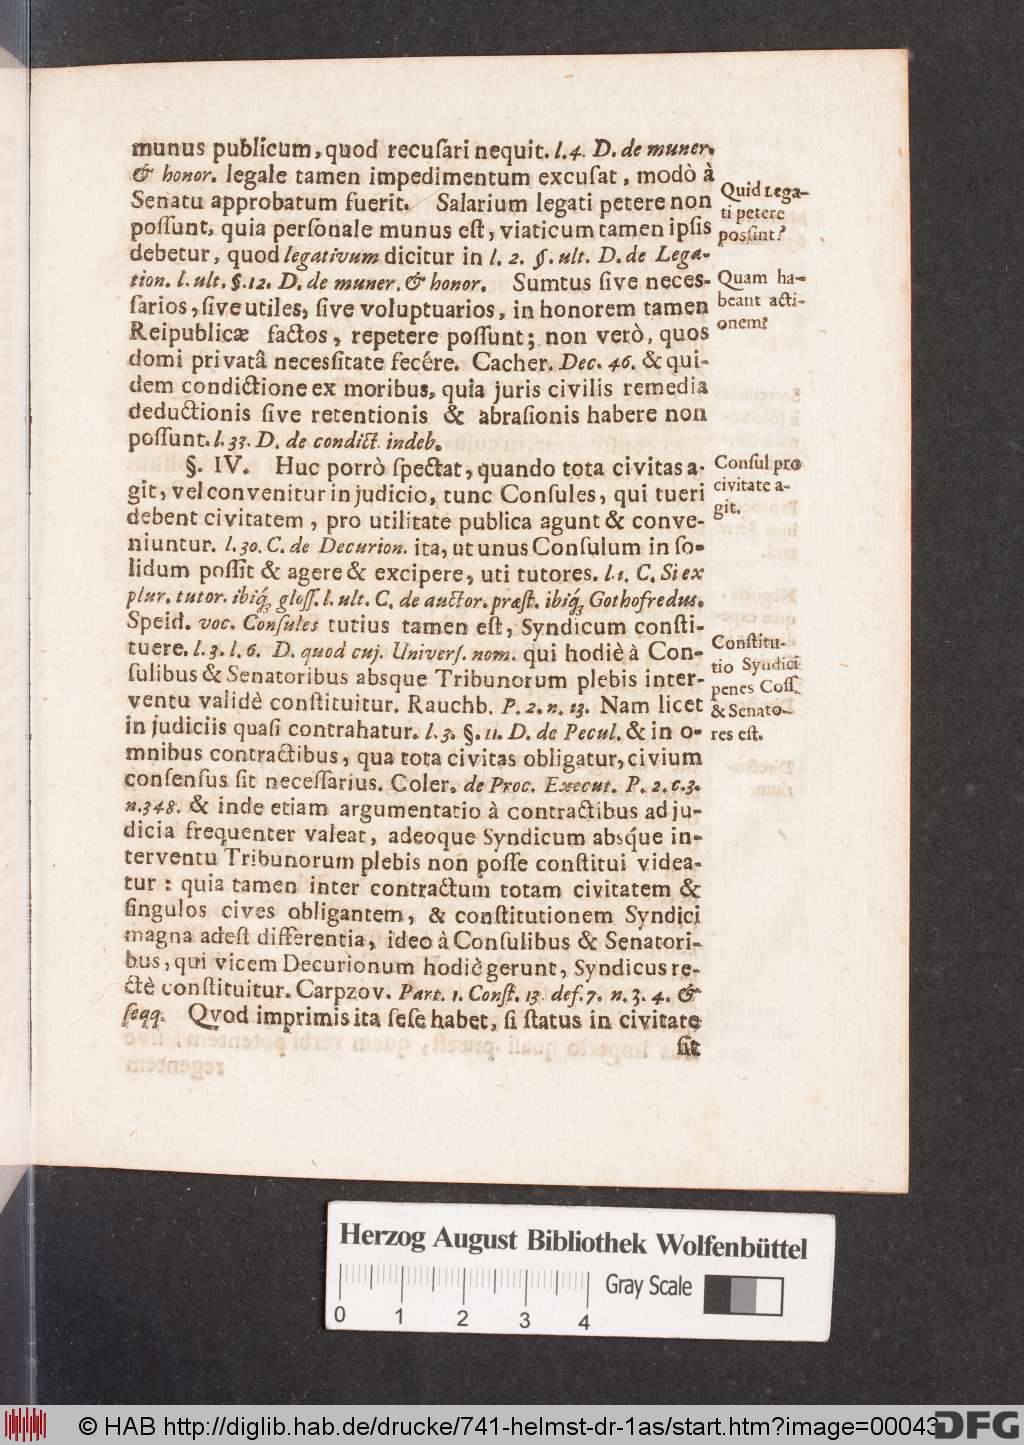 munus publicum, quod recusari nequit. l. 4. D. de muner.
& honor. legale tamen impedimentum excusat, modò à
Senatu approbatum fuerit. Salarium legati petere non
possunt, quia personale munus est, viaticum tamen ipsis
debetur, quod legativum dicitur in l. 2. §. ult. D. de Lega-
tion. l. ult. §. 12. D. de muner. & honor. Sumtus sive neces-
sarios, sive utiles, sive voluptuarios, in honorem tamen
Reipublicæ factos, repetere possunt; non verò, quos
domi privatâ necessitate fecére. Cacher. Dec. 46. & qui-
dem condictione ex moribus, quia juris civilis remedia
deductionis sive retentionis & abrasionis habere non
possunt. l. 33. D. de condict. indeb.
Quid Lega-
ti petere
possint?
Quam ha-
beant acti-
onem?
§. IV. Huc porrò spectat, quando tota civitas a-
git, vel convenitur in judicio, tunc Consules, qui tueri
debent civitatem, pro utilitate publica agunt & conve-
niuntur. l. 30. C. de Decurion. ita, ut unus Consulum in so-
lidum possit & agere & excipere, uti tutores. l. 1. C. Si ex
plur. tutor. ibiq; gloss. l. ult. C. de auctor. præst. ibiq; Gothofredus.
Speid. voc. Consules tutius tamen est, Syndicum consti-
tuere. l. 3. l. 6. D. quod cuj. Univers. nom. qui hodiè à Con-
sulibus & Senatoribus absque Tribunorum plebis inter-
ventu validè constituitur. Rauchb. P. 2. n. 13. Nam licet
in judiciis quasi contrahatur. l. 3. §. 11. D. de Pecul. & in o-
mnibus contractibus, qua tota civitas obligatur, civium
consensus sit necessarius. Coler. de Proc. Execut. P. 2. c. 3.
n. 348. & inde etiam argumentatio à contractibus ad ju-
dicia frequenter valeat, adeoque Syndicum absque in-
terventu Tribunorum plebis non posse constitui videa-
tur: quia tamen inter contractum totam civitatem &
singulos cives obligantem, & constitutionem Syndici
magna adest differentia, ideo à Consulibus & Senatori-
bus, qui vicem Decurionum hodiè gerunt, Syndicus re-
ctè constituitur. Carpzov. Part. 1. Const. 13. def. 7. n. 3. 4. &
seqq. Qvod imprimis ita sese habet, si status in civitate
sit
Consul pro
civitate a-
git.
Constitu-
tio Syndici
penes Coss.
& Senato-
res est.
Herzog August Bibliothek Wolfenbüttel
Gray Scale
0 1 2 3 4
© HAB http://diglib.hab.de/drucke/741-helmst-dr-1as/start.htm?image=00043
DFG